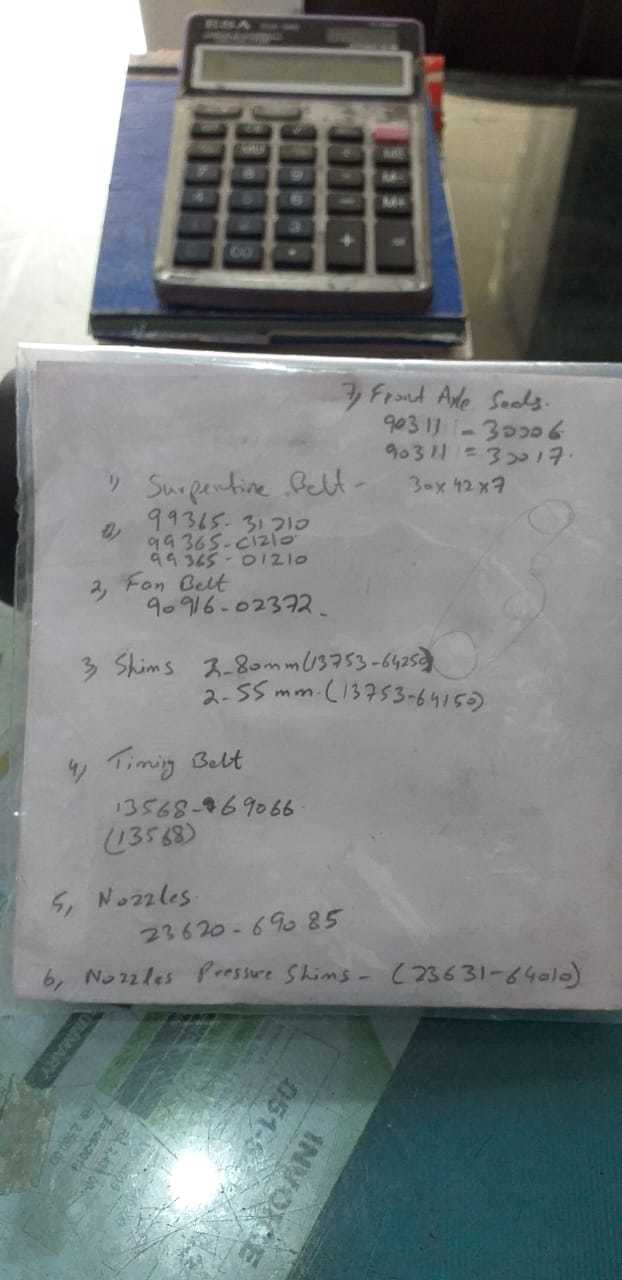 ESA
7 8 9 - M-
4 5 6 — M+
3 + =
00 •
7, Front Axle Seals.
90311 - 30006
90311 = 30017.
1) Surpentine Belt - 30x42x7
99365-31210
99365-C1210
99365-01210
2, Fan Belt
90916-02372-
3, Shims 2-80mm (13753-64250)
2-55 mm. (13753-64150)
4, Timing Belt
13568-69066
(13568)
5, Nozzles
23620-69085
6, Nozzles Pressure Shims - (23631-64010)
051-5
INVOICE